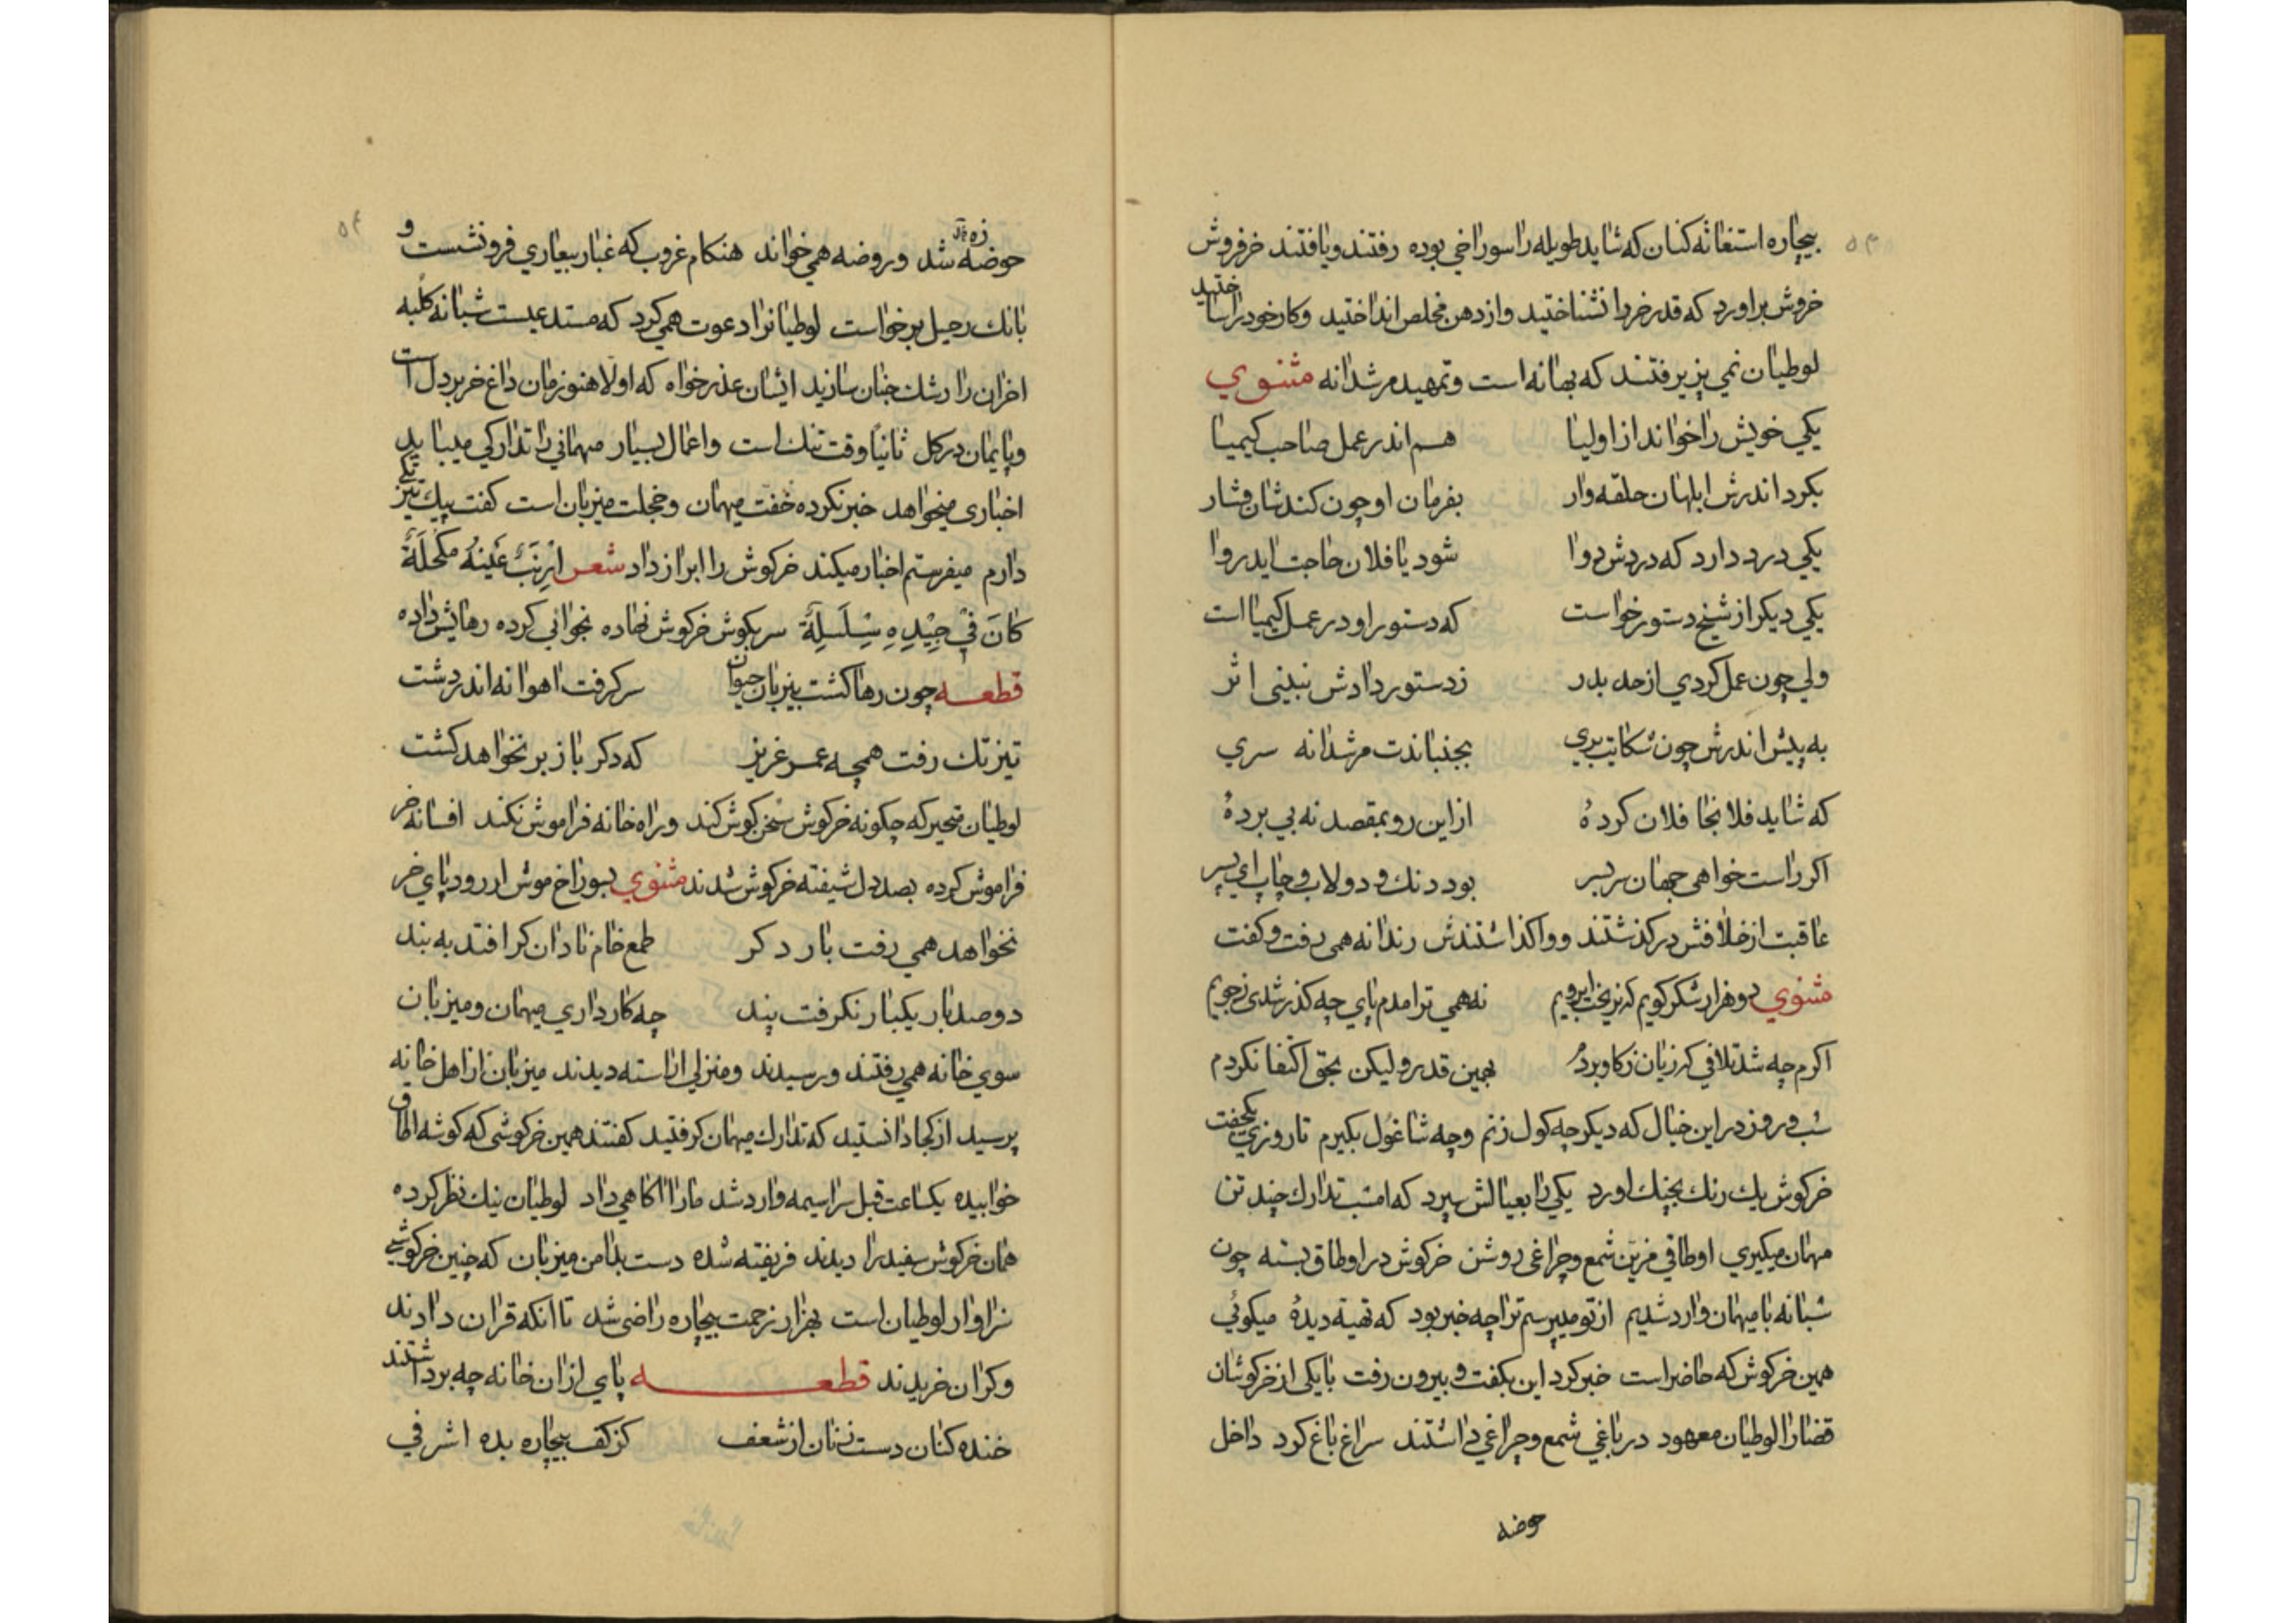 بیچاره استغاثه کنان که شاید طویله را سوراخی بوده رفتند و یافتند خرفروش
خروش براورد که قدر خر را نشناختید و از دهن مخلص انداختید و کار خود را ساختید
لوطیان نمی پزیرفتند که بهانه است و تمهید مرشدانه مثنوي
یکي خویش را خواند از اولیا هم اندر عمل صاحب کیمیا
بکرد اندرش ابلهان حلقه وار بفرمان او چون کنندشان فشار
یکي درد دارد که دردش دوا شود یا فلان حاجت اید روا
یکي دیکر از شیخ دستور خواست که دستور او در عمل کیمیا است
ولي چون عمل کردي از حد بدر ز دستور دادش نبینی اثر
به پیش اندرش چون شکایت بري بجنباندت مرشدانه سري
که شاید فلانجا فلان کردهٔ از این رو بمقصد نه پي بردهٔ
اکر راست خواهی جهان سربسر بود دنك و دولاب و چاپ ای پسر
عاقبت از خلافش درکذشتند و واکذاشتندش رندانه همی رفت و کفت
مثنوي دو هزار شکر کویم که نریخت ابرویم نه همی ترا مدم پاي چه کذر شدی ز جویم
اکرم چه شد تلافي که زیان ز کاو بردم بهمین قدر ولیکن بحق اکتفا نکردم
شب و روز در این خیال که دیکر چه کول زنم و چه شاغول بکیرم تا روزي یکجفت
خرکوش یك رنك بچنك اورد یکي را بعیالش سپرد که امشب تدارك چند تن
مهمان میکیري اوطاقي مزیّن شمع و چراغی روشن خرکوش در اوطاق بسته چون
شبانه با میهمان وارد شدیم از تو میپرسم ترا چه خبر بود که تهیه دیدهٔ میکوئي
همین خرکوش که حاضر است خبر کرد این بکفت و بیرون رفت با یکی از خرکوشان
قضا را لوطیان معهود در باغي شمع و چراغي داشتند سراغ باغ کرد داخل
حوضه
حوضه شد و روضه همي خواند هنکام غروب که غبار بیعاري فرونشست و
بانك رحیل برخواست لوطیانرا دعوت همي کرد که مستدعیست شبانه کلبه
اخران را رشك جنان سازید ایشان عذرخواه که اولا هنوزمان داغ خر بر دل است
و پایمان در کل ثانیا وقت تنك است و اعمال بسیار مهمانی را تدارکي میباید
اخباری میخواهد خبر نکرده خفت میهمان و خجلت میزبان است کفت پیك تیز تکي
دارم میفرستم اخبار میکند خرکوش را ابراز داد شعر ارنب عینه مکحلة
کان في جیده سلسلة سر بکوش خرکوش نهاده نجوائي کرده رهایش داده
قطعه چون رها کشت بیزبان حیوان سر کرفت اهوانه اندر دشت
تیزتك رفت همچه عمر عزیز که دکر باز بر نخواهد کشت
لوطیان متحیر که چکونه خرکوش سخن کوش کند و راه خانه فراموش نکند افسانه خر
فراموش کرده بصد دل شیفته خرکوش شدند مثنوي بسوراخ موش ار رود پاي خر
نخواهد همي رفت بار دکر طمع خام نادان کرا افتد به بند
دو صد بار یکبار نکرفت پند چه کار داري میهمان و میزبان
سوي خانه همي رفتند و رسیدند و منزلي اراسته دیدند میزبان از اهل خانه
پرسید از کجا دانستید که تدارك میهمان کرفتید کفتند همین خرکوشی که کوشه اطاق
خوابیده یکساعت قبل سراسیمه وارد شد ما را اکاهي داد لوطیان نیك نظر کرده
همان خرکوش سفید را دیدند فریفته شده دست بدامن میزبان که چنین خرکوشي
سزاوار لوطیان است بهزار زحمت بیچاره راضی شد تا انکه قران دادند
و کران خریدند قطعه پاي از ان خانه چه برداشتند
خنده کنان دست زنان از شعف کز کف بیچاره بده اشرفي